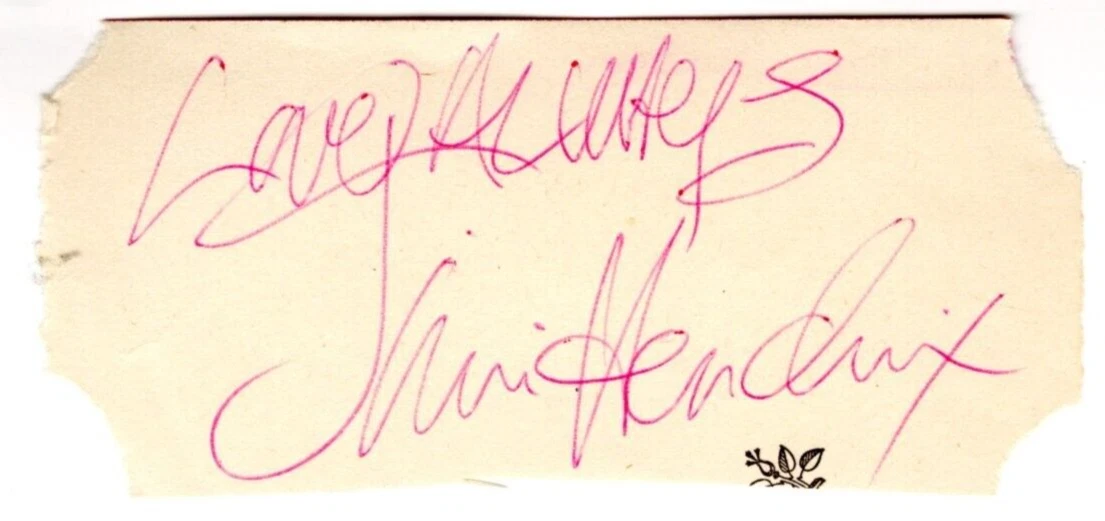 Love Always
Jimi Hendrix